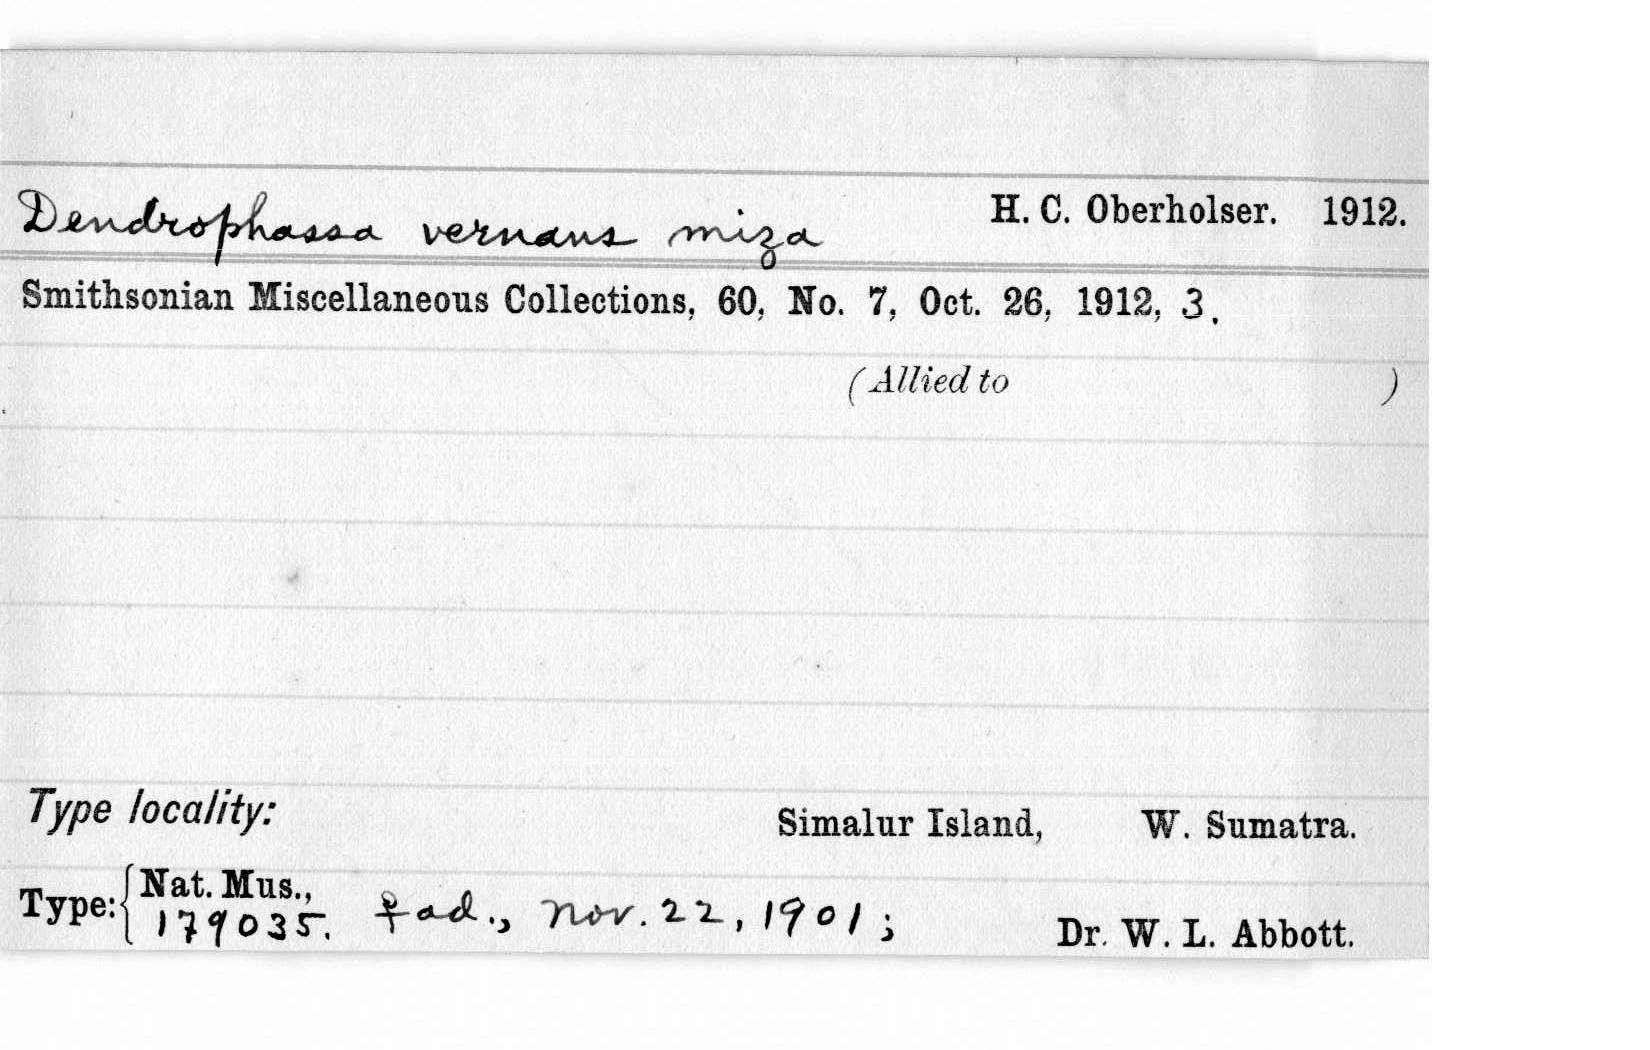 Dendrophassa vernans miza H. C. Oberholser. 1912.
Smithsonian Miscellaneous Collections, 60, No. 7, Oct. 26, 1912, 3.
(Allied to )
Type locality: Simalur Island, W. Sumatra.
Type: { Nat. Mus.,
179035. ♀ ad., Nov. 22, 1901; Dr. W. L. Abbott.